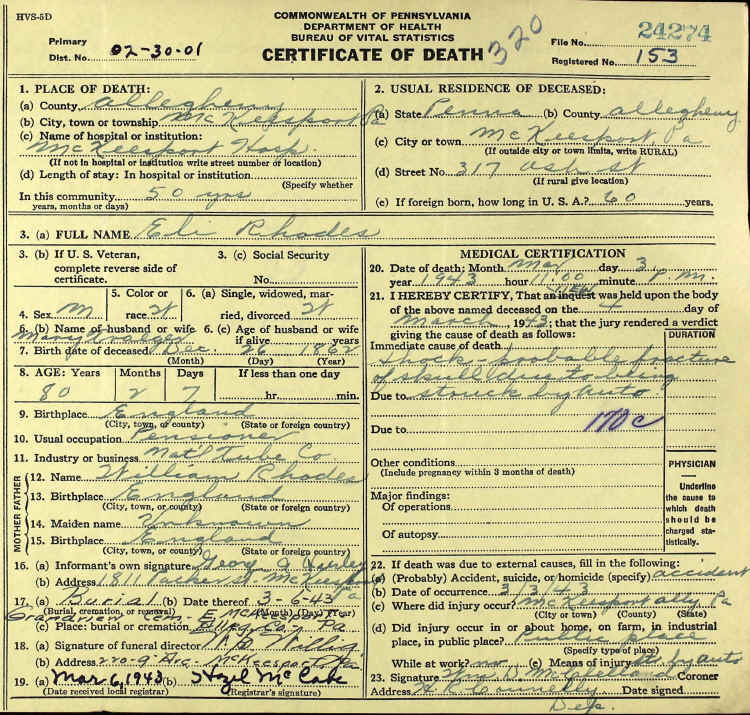 HVS-5D
COMMONWEALTH OF PENNSYLVANIA
DEPARTMENT OF HEALTH
BUREAU OF VITAL STATISTICS
CERTIFICATE OF DEATH
320
Primary
Dist. No. 02-30-01
File No. 24274
Registered No. 153
1. PLACE OF DEATH:
(a) County Allegheny
(b) City, town or township McKeesport Pa
(c) Name of hospital or institution:
McKeesport Hosp.
(If not in hospital or institution write street number or location)
(d) Length of stay: In hospital or institution
(Specify whether
In this community 50 yrs
years, months or days)
2. USUAL RESIDENCE OF DECEASED:
(a) State Penna (b) County Allegheny
(c) City or town McKeesport Pa
(If outside city or town limits, write RURAL)
(d) Street No. 317 st
(If rural give location)
(e) If foreign born, how long in U. S. A.? 60 years.
3. (a) FULL NAME Eli Rhodes
3. (b) If U. S. Veteran,
complete reverse side of
certificate.
3. (c) Social Security
No.
4. Sex M
5. Color or
race
6. (a) Single, widowed, mar-
ried, divorced
6. (b) Name of husband or wife
Mary
6. (c) Age of husband or wife
if alive years
7. Birth date of deceased Dec 26 1862
(Month) (Day) (Year)
8. AGE: Years Months Days If less than one day
80 2 7 hr. min.
9. Birthplace England
(City, town, or county) (State or foreign country)
10. Usual occupation Pensioner
11. Industry or business Nat'l Tube Co.
FATHER
12. Name William Rhodes
13. Birthplace England
(City, town, or county) (State or foreign country)
MOTHER
14. Maiden name Unknown
15. Birthplace England
(City, town, or county) (State or foreign country)
16. (a) Informant's own signature Geo
(b) Address 1811 Packer st McKeesport Pa
17. (a) Burial (b) Date thereof 3-6-43
(Burial, cremation, or removal) (Month) (Day) (Year)
Grandview Cem- E McKeesport
(c) Place: burial or cremation Alleg. Co. Pa
18. (a) Signature of funeral director
(b) Address 220-9 Ave McKeesport Pa
19. (a) Mar 6, 1943 (b) Hazel McCabe
(Date received local registrar) (Registrar's signature)
MEDICAL CERTIFICATION
20. Date of death: Month Mar day 3
year 1943 hour 11:00 minute P. M.
21. I HEREBY CERTIFY, That an inquest was held upon the body
VIEW
of the above named deceased on the 4 day of
March 1943; that the jury rendered a verdict
giving the cause of death as follows:
DURATION
Immediate cause of death
Shock & probable fracture
of skull due to being
Due to struck by auto
Due to 170c
Other conditions
(Include pregnancy within 3 months of death)
Major findings:
Of operations
Of autopsy
PHYSICIAN
Underline
the cause to
which death
should be
charged sta-
tistically.
22. If death was due to external causes, fill in the following:
(a) (Probably) Accident, suicide, or homicide (specify) accident
(b) Date of occurrence 3/3/43
(c) Where did injury occur? McKeesport Ally Pa
(City or town) (County) (State)
(d) Did injury occur in or about home, on farm, in industrial
place, in public place? Public place
(Specify type of place)
While at work? no (e) Means of injury by auto
23. Signature Wm D. McClelland Coroner
Address H R Connelly Date signed
Dep.